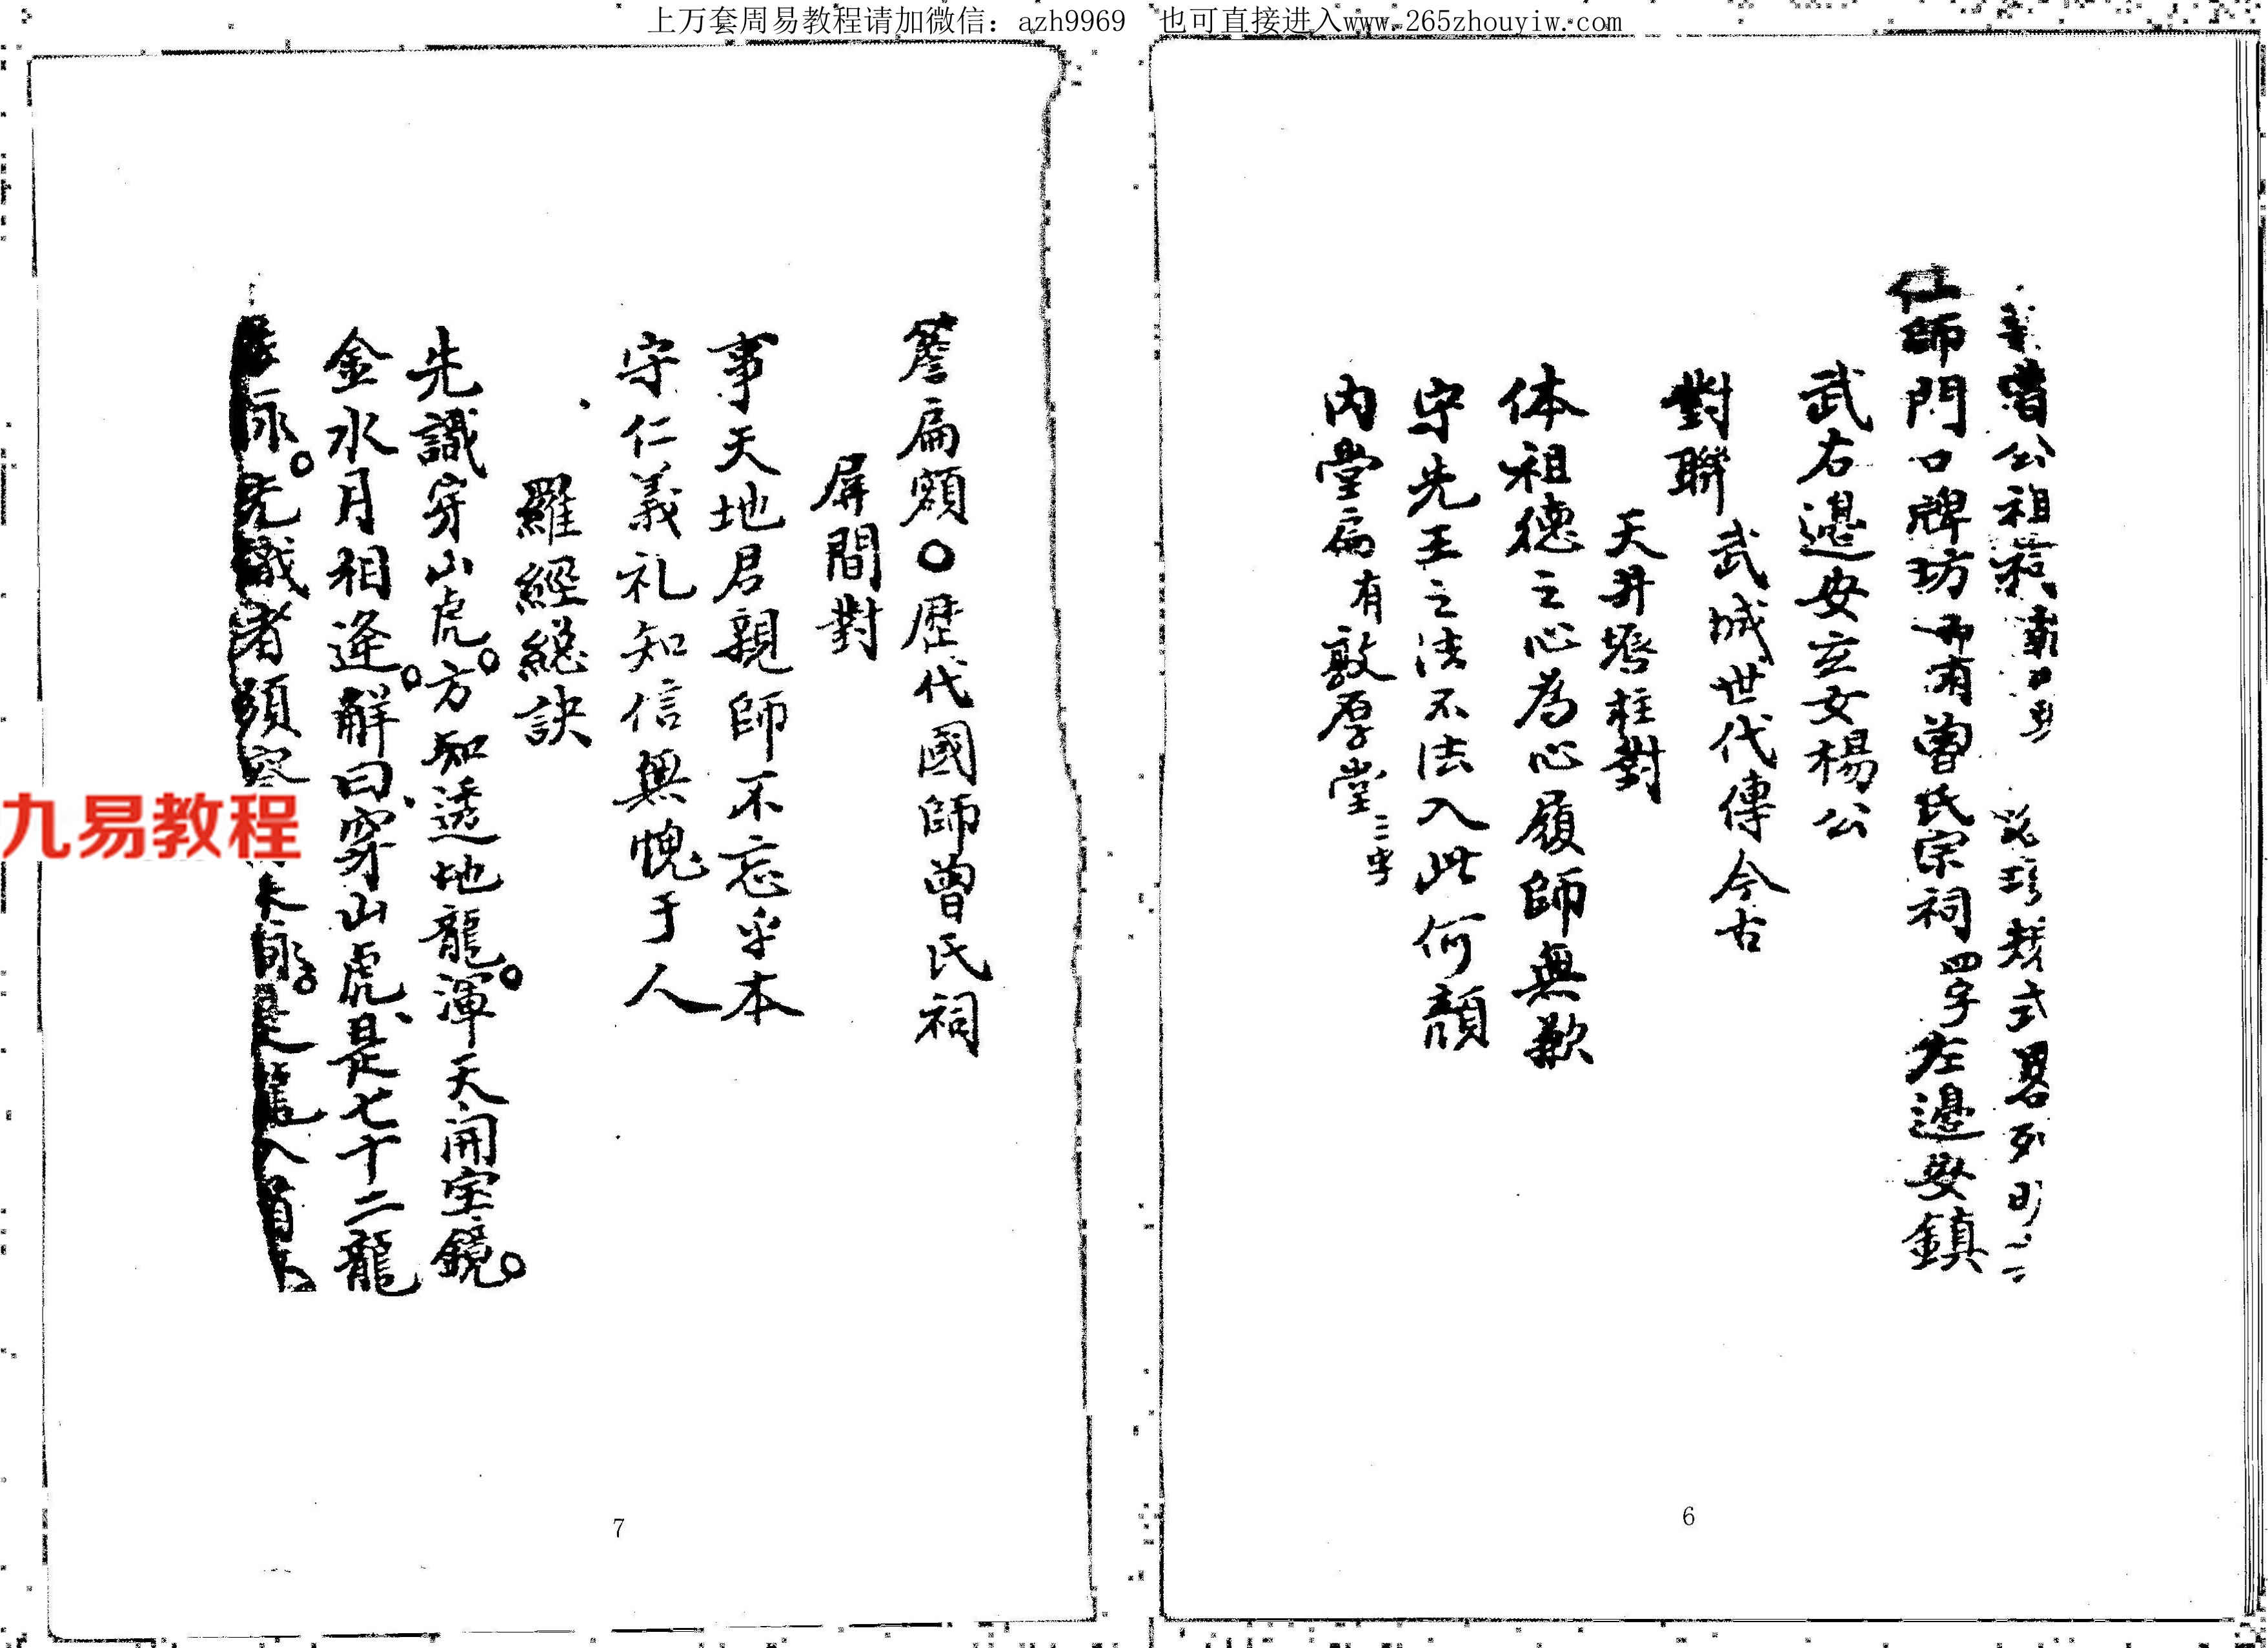 上万套周易教程请加微信：azh9969　也可直接进入www.265zhouyiw.com
曾公祖 式畧列明
師門口牌坊 有曾氏宗祠四字左邊安鎮
武右邊安立女楊公
對聯 武城世代傳今古
天井 柱對
体祖德之心為心履師無歉
守先王之法不法入此何顔
内堂扁有敦厚堂三字
6
簷扁額○歷代國師曾氏祠
屏間對
事天地君親師不忘乎本
守仁義礼知信無愧于人
羅經總訣
先識穿山虎。方知透地龍。渾天開宝鏡。
金水月相逢。解曰穿山虎是七十二龍
先識者須 來 是龍入首
7
九易教程